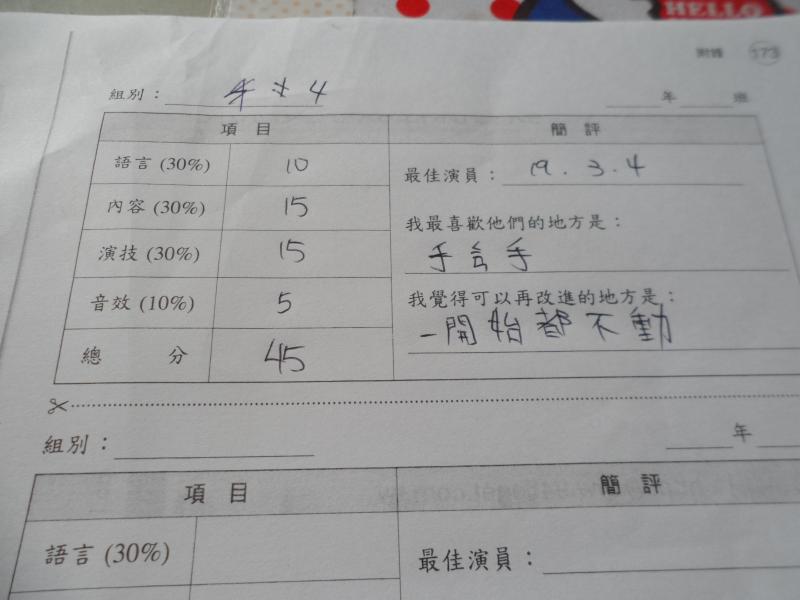 HELLO
附錄 173
組別： 4
年 班
項 目 簡 評
語言 (30%) 10 最佳演員： 19 . 3 . 4
內容 (30%) 15 我最喜歡他們的地方是：
演技 (30%) 15 手合手
音效 (10%) 5 我覺得可以再改進的地方是：
總 分 45 一開始都不動
組別： 年
項 目 簡 評
語言 (30%) 最佳演員：